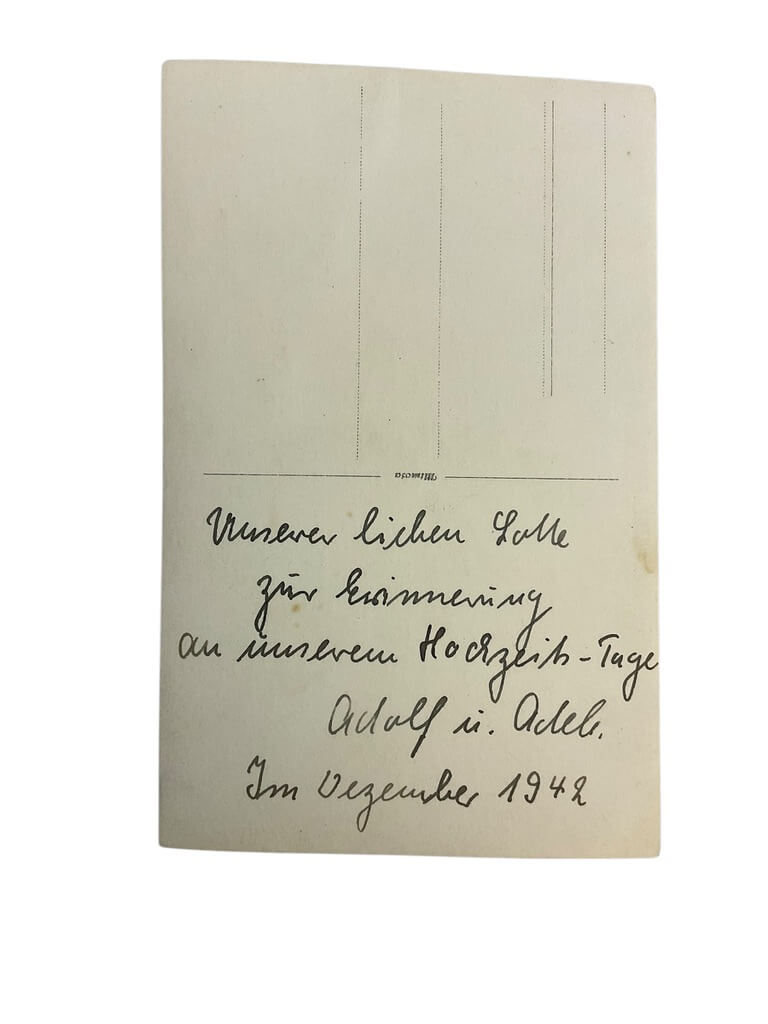 Mimosa
Unserer lieben Lotte
zur Erinnerung
an unserem Hochzeits-Tage
Adolf u.
Im Dezember 1942